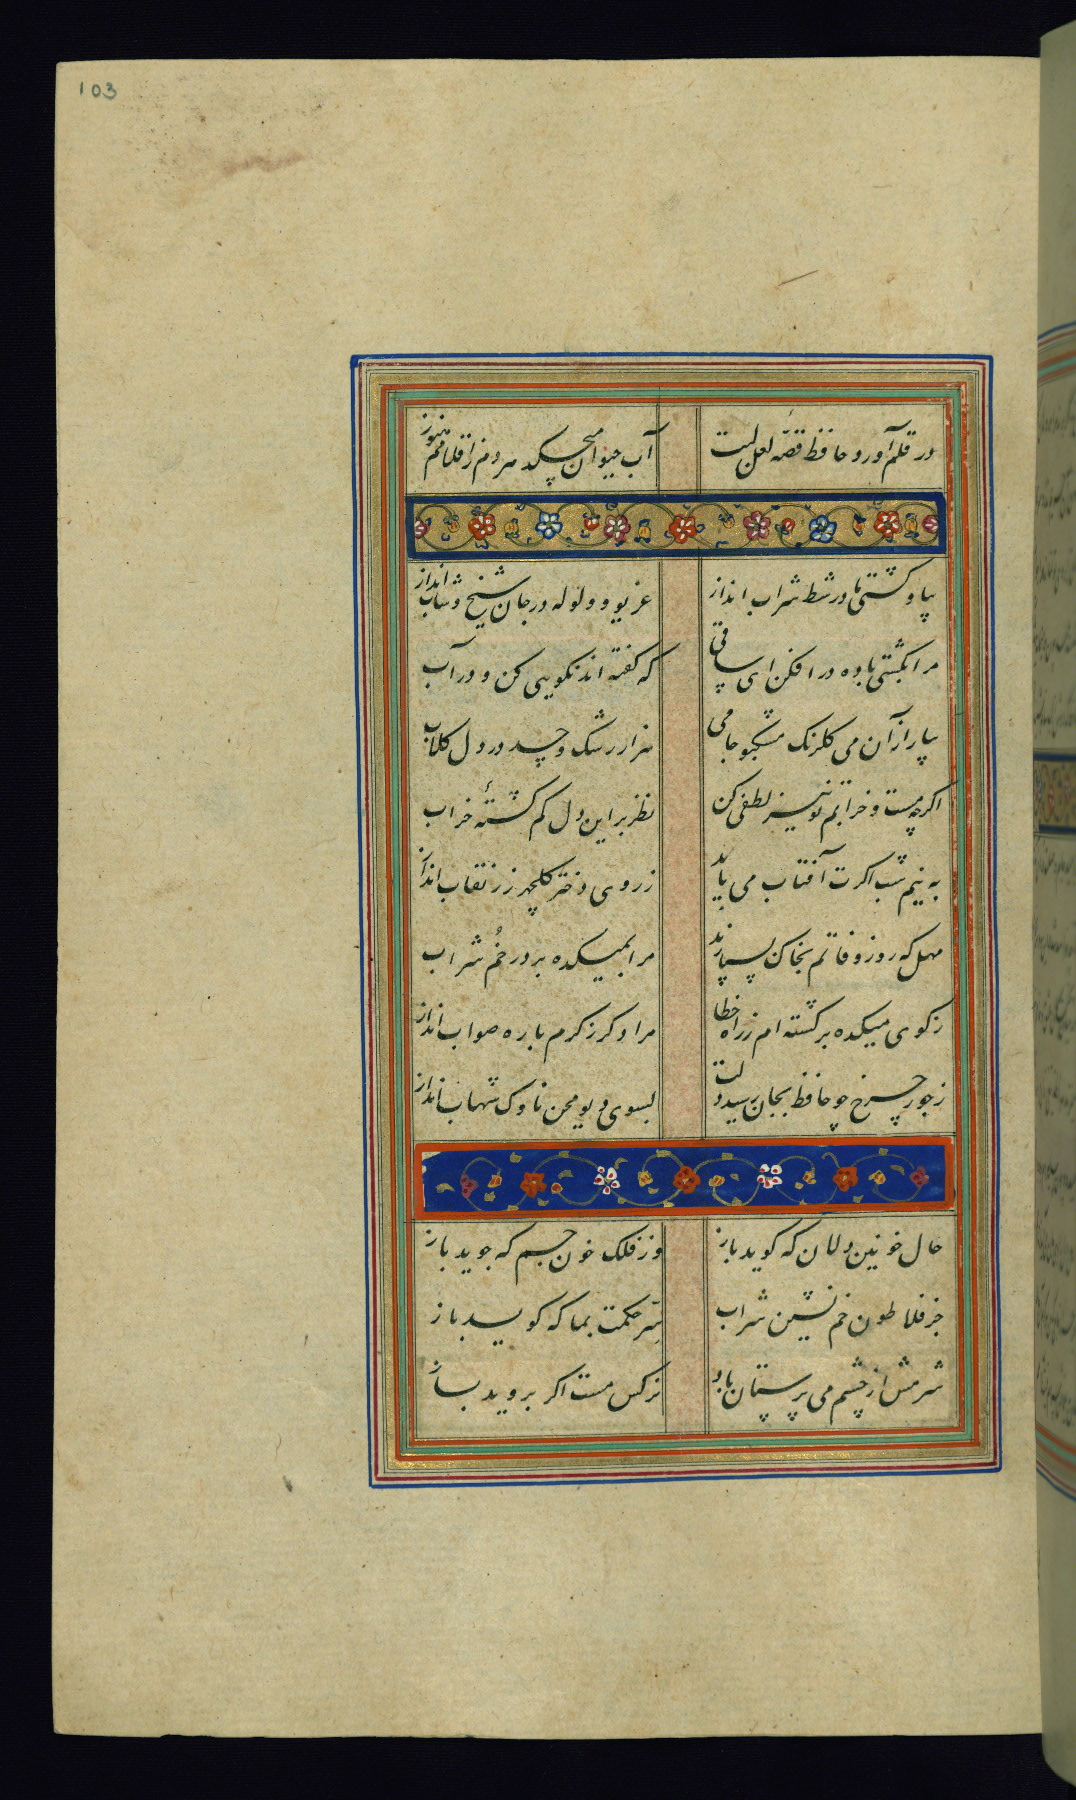 103
در قلم آورد حافظ قصّهٔ لعل لبت آب حیوان میچکد هر دم ز اقلامم هنوز
بیا و کشتی ما در شط شراب انداز غریو و ولوله در جان شیخ و شاب انداز
مرا بکشتی باده در افکن ای ساقی که گفته اند نکویی کن و در آب
بیار از آن می کلرنک مشکبو جامی هزار رشک و حسد در دل کلاب
اکرچه مست و خرابم تو نیز لطفی کن نظر بر این دل کم کشتهٔ خراب
به نیم شب اکرت آفتاب می باید ز روی دختر کلچهر رز نقاب انداز
مهل که روز وفاتم بخاک بسپارند مرا بمیکده بر در خُم شراب
ز کوی میکده برکشته ام ز راه خطا مرا دکر ز کرم با ره صواب انداز
ز جور چرخ چو حافظ بجان رسید دلت بسوی دیو محن ناوک شهاب انداز
حال خونین دلان که کوید باز وز فلک خون جم که جوید باز
جز فلاطون خم نشین شراب سِّر حکمت بما که کوید باز
شرمش از چشم می پرستان باد نرکس مست اکر بروید باز